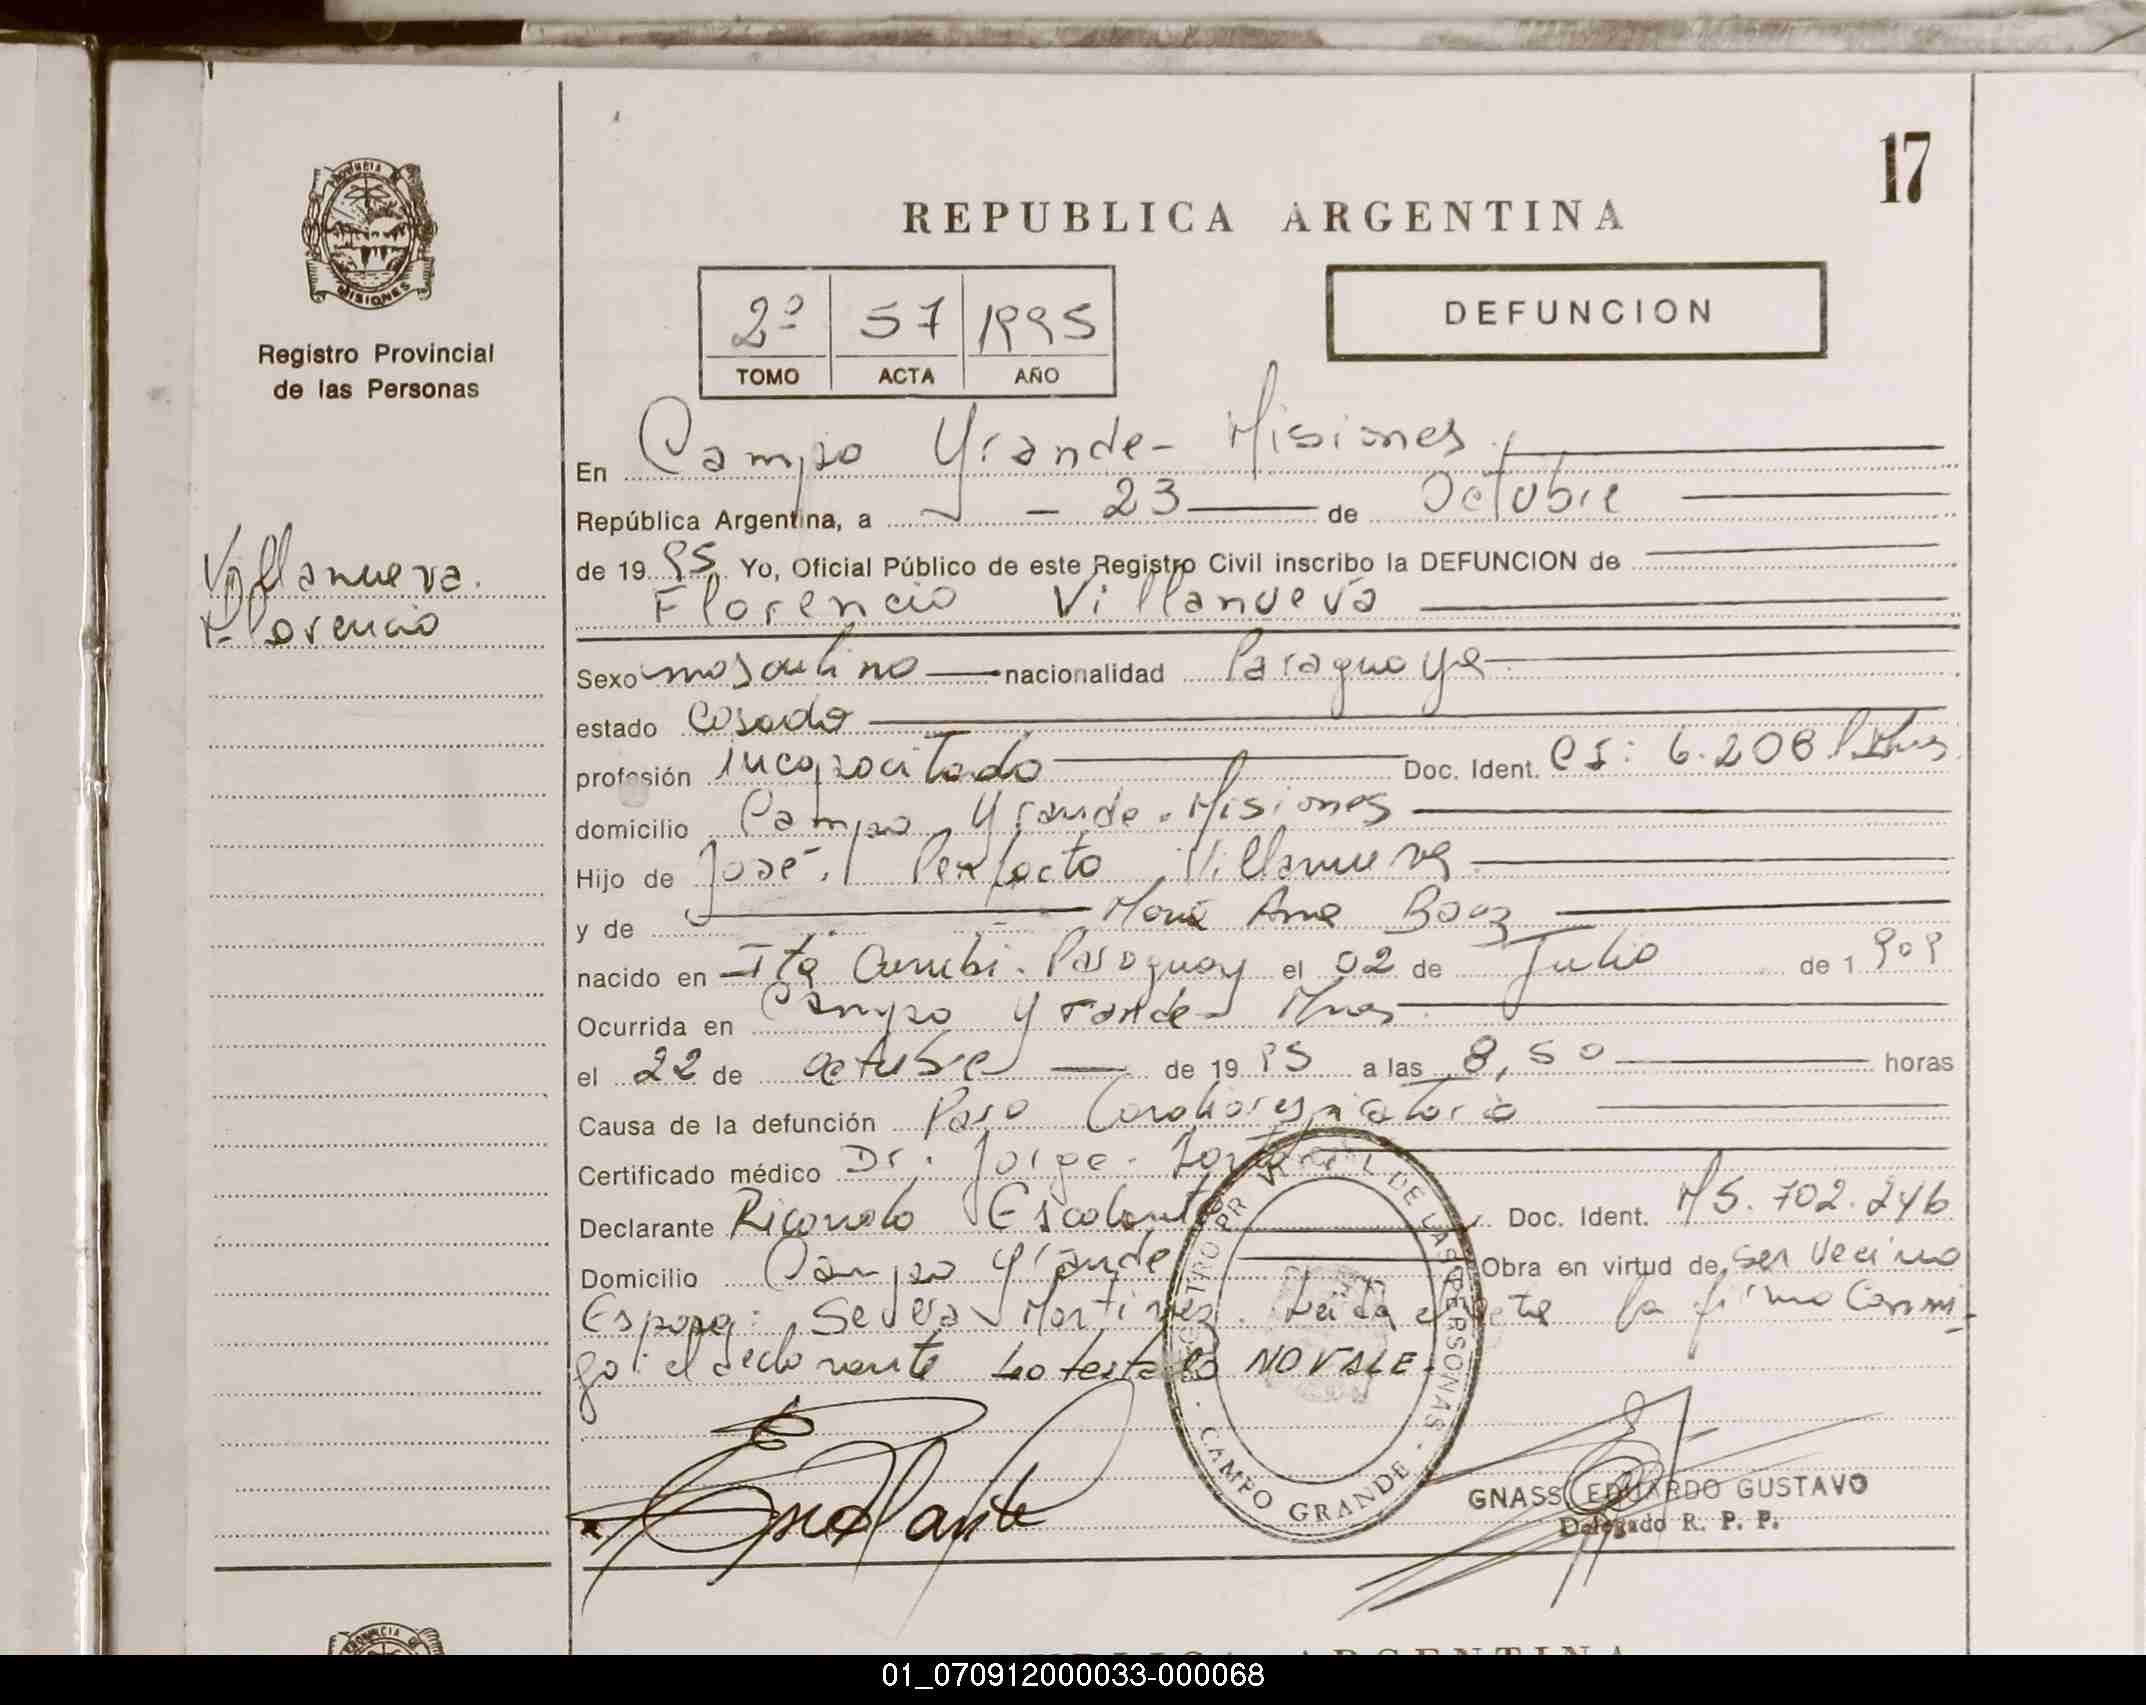 17
PROVINCIA DE
MISIONES
Registro Provincial
de las Personas
REPUBLICA ARGENTINA
2º 57 1995
TOMO ACTA AÑO
DEFUNCION
Villanueva.
Florencio
En Campo Grande - Misiones.
República Argentina, a - 23 de Octubre
de 1995 Yo, Oficial Público de este Registro Civil inscribo la DEFUNCION de
Florencio Villanueva
Sexo masculino nacionalidad Paraguaya
estado Casado
profesión incapacitado Doc. Ident. CI: 6.208
domicilio Campo Grande - Misiones
Hijo de José Perfecto Villanueva
y de María Ana Baez
nacido en Itá Curubi. Paraguay el 02 de Julio de 1909
Ocurrida en Campo Grande - Mnes
el 22 de octubre de 1995 a las 8,50 horas
Causa de la defunción Paro Cardiorespiratorio
Certificado médico Dr. Jorge
Declarante Ricardo Escalante Doc. Ident. M5.702.246
Domicilio Campo Grande Obra en virtud de ser vecino
Esposa: Severa Martinez. Leida el acta la firma Conmi-
go: el declarante Lo testado NO VALE.
REGISTRO PROVINCIAL DE LAS PERSONAS
· CAMPO GRANDE ·
Escalante
GNASS EDUARDO GUSTAVO
Delegado R. P. P.
PROVINCIA DE
REPUBLICA ARGENTINA
01_070912000033-000068